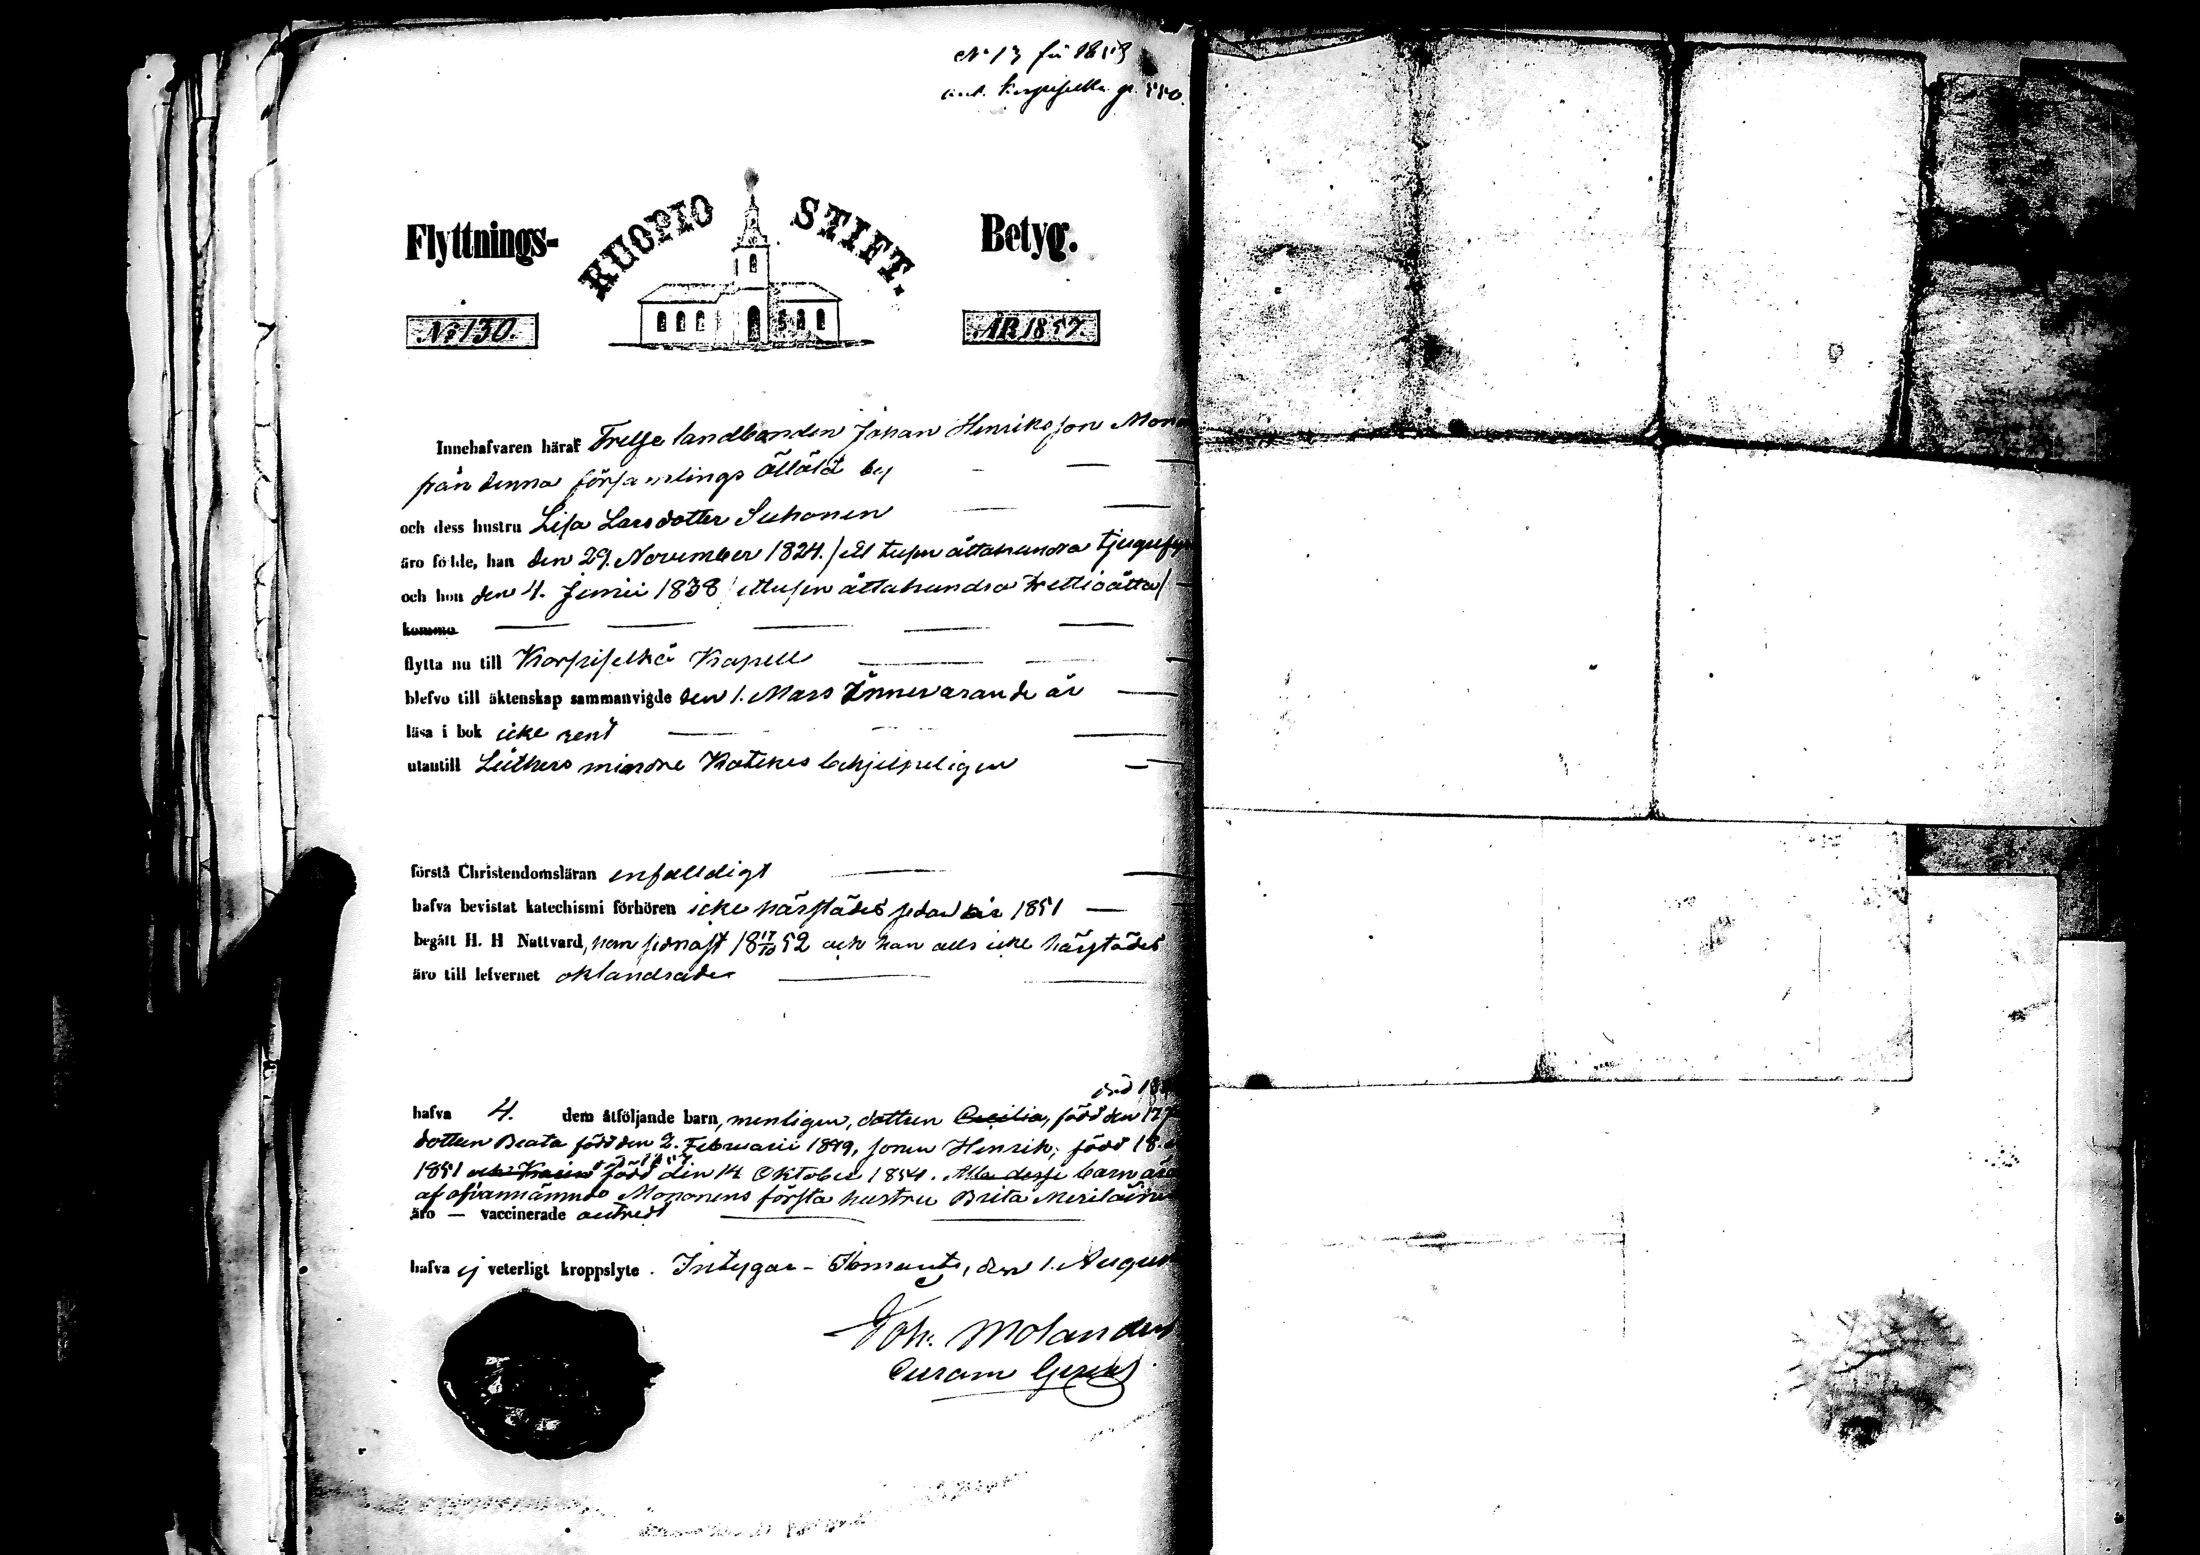 No 13 för 1859
ank. Korpiselkä p. 550.
Flyttnings-
KUOPIO STIFT.
Betyg.
No 130.
ÅR 1857.
Innehafvaren häraf Frelse landbonden Johan Henriksson Mono
från denna församlings Ällälä by
och dess hustru Lisa Larsdotter Suhonen
äro födde, han den 29. November 1824. / ett tusen åttahundra tjugufyra
och hon den 4. Junii 1838 / ettusen åttahundra trettioåtta /
komma
flytta nu till Korpiselkä Kapell
blefvo till äktenskap sammanvigde den 1. Mars innevarande år
läsa i bok icke rent
utantill Luthers mindre Katekes behjelpeligen
förstå Christendomsläran enfalldigt
hafva bevistat katechismi förhören icke härstädes sedan år 1851
begått H. H Nattvard, hon sednast 18 17/10 52 och han alls icke härstädes
äro till lefvernet oklandrade
död 18
hafva 4. dem åtföljande barn, nemligen, dottren Cecilia, född den 17
dottren Beata född den 2. Februarii 1849, sonen Henrik, född 18
1851 och Karin född den 14 Oktober 1854. Alla desse barn äro
af ofvannämnde Mononens första hustru Brita Meriläinen
äro — vaccinerade
hafva ej veterligt kroppslyte. Intygar - Ilomants, den 1. August
Joh. Molander
Curam Gerens